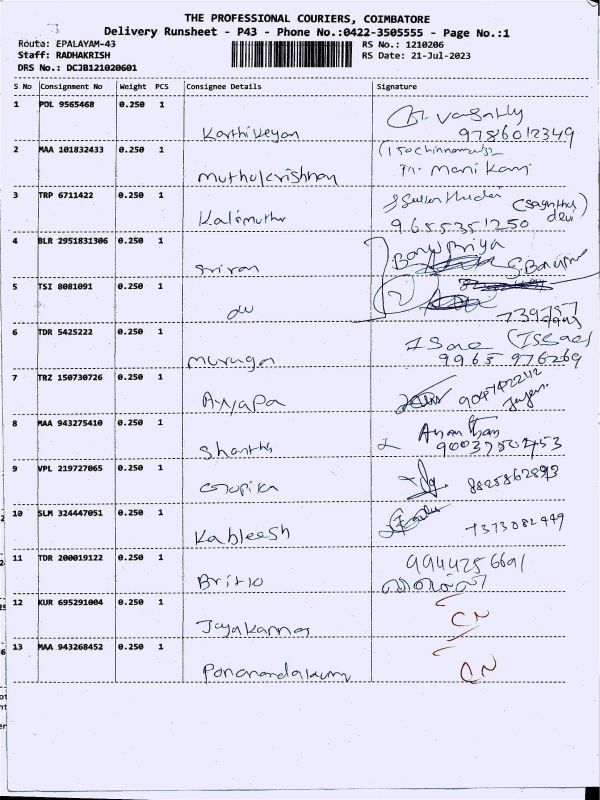 THE PROFESSIONAL COURIERS, COIMBATORE
Delivery Runsheet - P43 - Phone No.:0422-3505555 - Page No.:1
Routa: EPALAYAM-43
RS No.: 1210206
Staff: RADHAKRISH
RS Date: 21-Jul-2023
DRS No.: DCJB121020601
S No Consignment No Weight PCS Consignee Details Signature
1 POL 9565468 0.250 1
Karthikeyan 9786012349
2 MAA 101832433 0.250 1
muthukrishnan Manikam
3 TRP 6711422 0.250 1
Kalimuthu 9655351250
4 BLR 2951831306 0.250 1 Banupriya
Sriran
5 TSI 8081091 0.250 1
du
6 TDR 5425222 0.250 1 ISac
muruga 9965 976269
7 TRZ 150730726 0.250 1
Ayyapa
8 MAA 943275410 0.250 1 Ananthan
Shanthi
9 VPL 219727065 0.250 1
Gopika 8825862893
10 SLM 324447051 0.250 1
Kableesh 7373082449
11 TDR 200019122 0.250 1
Britto
12 KUR 695291004 0.250 1 CN
Jayakannan
13 MAA 943268452 0.250 1
CN